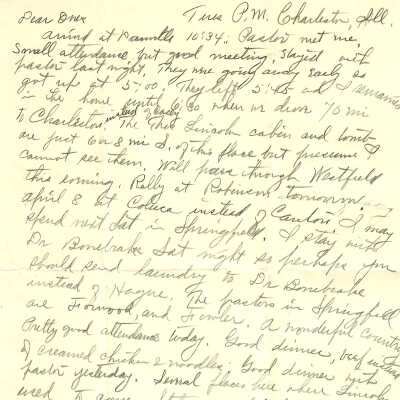 Dear Ones Tues P.M. Charleston, Ill.
arrived at Danville 10:34. Pastor met me.
Small attendance but good meeting. Stayed with
pastor last night. They are going away early so
got up at 5:00. They left 5:45 and I remained
in the home until 6:30 when we drove 70 mi
to Charleston instead of early. The Lincoln cabin and tomb
are just 6 or 8 mi S. of this place but presume I
cannot see them. Will pass through Westfield
this evening. Rally at Robinson tomorrow,
april 8 at Colusa instead of Canton. I may
spend next Sat in Springfield. I stay with
Dr Bonebrake Sat night so perhaps you
should send laundry to Dr Bonebrake
instead of Hogue. The pastors in Springfield
are Forwood, and Fowler. A wonderful country.
Pretty good attendance today. Good dinner, beef
of creamed chicken & noodles. Good dinner with
pastor yesterday. Several places here where Lincoln
used to